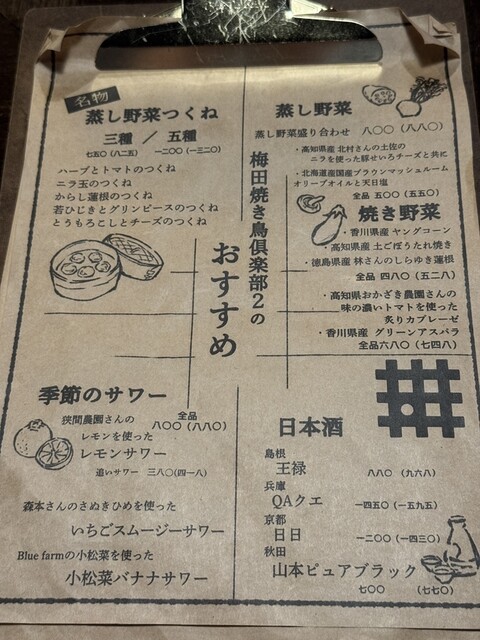 名物
蒸し野菜つくね
三種 / 五種
七五〇(八二五) 一二〇〇(一三二〇)
ハーブとトマトのつくね
ニラ玉のつくね
からし蓮根のつくね
若ひじきとグリンピースのつくね
とうもろこしとチーズのつくね
梅田焼き鳥倶楽部2の
おすすめ
蒸し野菜
蒸し野菜盛り合わせ 八〇〇(八八〇)
・高知県産 北村さんの土佐の
ニラを使った豚せいろチーズと共に
・北海道産国産ブラウンマッシュルーム
オリーブオイルと天日塩
全品 五〇〇(五五〇)
焼き野菜
・香川県産 ヤングコーン
・高知県産 土ごぼうたれ焼き
・徳島県産 林さんのしらゆき蓮根
全品 四八〇(五二八)
・高知県おかざき農園さんの
味の濃いトマトを使った
炙りカプレーゼ
・香川県産 グリーンアスパラ
全品六八〇(七四八)
季節のサワー
全品
八〇〇(八八〇)
狭間農園さんの
レモンを使った
レモンサワー
追いサワー 三八〇(四一八)
森本さんのさぬきひめを使った
いちごスムージーサワー
Blue farmの小松菜を使った
小松菜バナナサワー
日本酒
島根
王禄 八八〇(九六八)
兵庫
QAクエ 一四五〇(一五九五)
京都
日日 一二〇〇(一四三〇)
秋田
山本ピュアブラック
七〇〇 (七七〇)